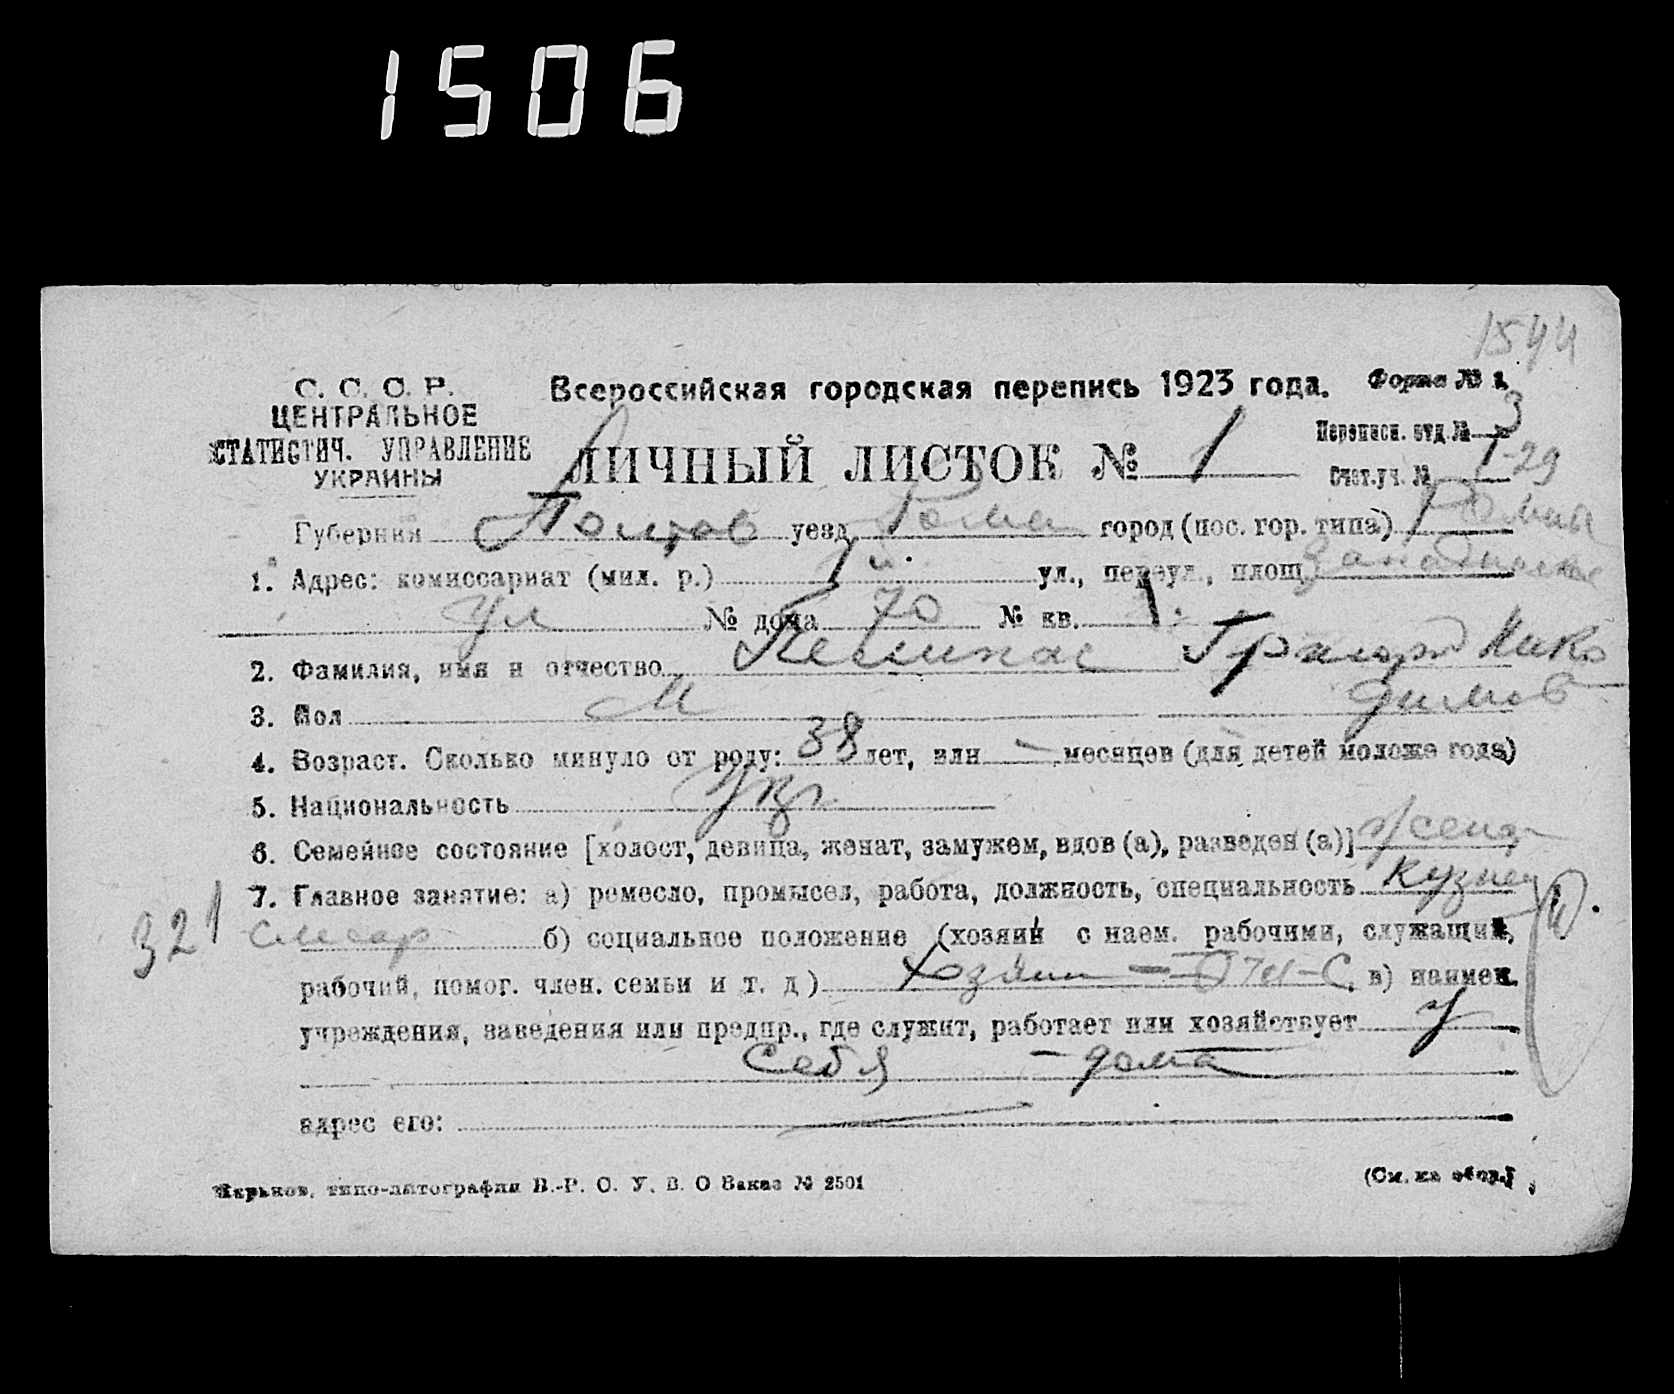 1506
1544
С. С. С. Р.
ЦЕНТРАЛЬНОЕ
СТАТИСТИЧ. УПРАВЛЕНИЕ
УКРАИНЫ
Всероссийская городская перепись 1923 года. Форма № 1.
Переписн. отд. № 3
ЛИЧНЫЙ ЛИСТОК № 1
Счет.уч. № 1-29
Губерния Полтав уезд Ромен город (пос. гор. типа)
1. Адрес: комиссариат (мил. р.) ул., переул., площ.
ул № дома 70 № кв. 1
2. Фамилия, имя и отчество Нико
димов
3. Пол М
4. Возраст. Сколько минуло от роду: 38 лет, или — месяцев (для детей моложе года)
5. Национальность Укр.
6. Семейное состояние [холост, девица, женат, замужем, вдов (а), разведен (а)] женат
7. Главное занятие: а) ремесло, промысел, работа, должность, специальность кузнец
321 слесар б) социальное положение (хозяин с наем. рабочими, служащий,
рабочий, помог. член. семьи и т. д ) Хозяин — в) наимен.
учреждения, заведения или предпр., где служит, работает или хозяйствует у
себя — дома
адрес его:
Харьков, типо-литография В.-Р. С. У. В. О Заказ № 2501 (См. на обор.)